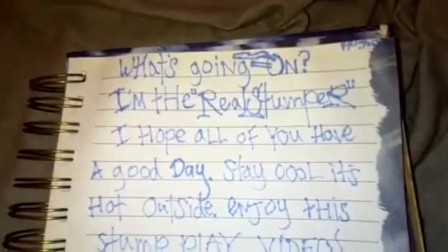 WHat's going ON?
I'm tHe "Real Stumper"
I Hope all of You Have
A good Day. Stay cool it's
Hot Outside. enjoy tHis
Stump PLAY VIDEO!